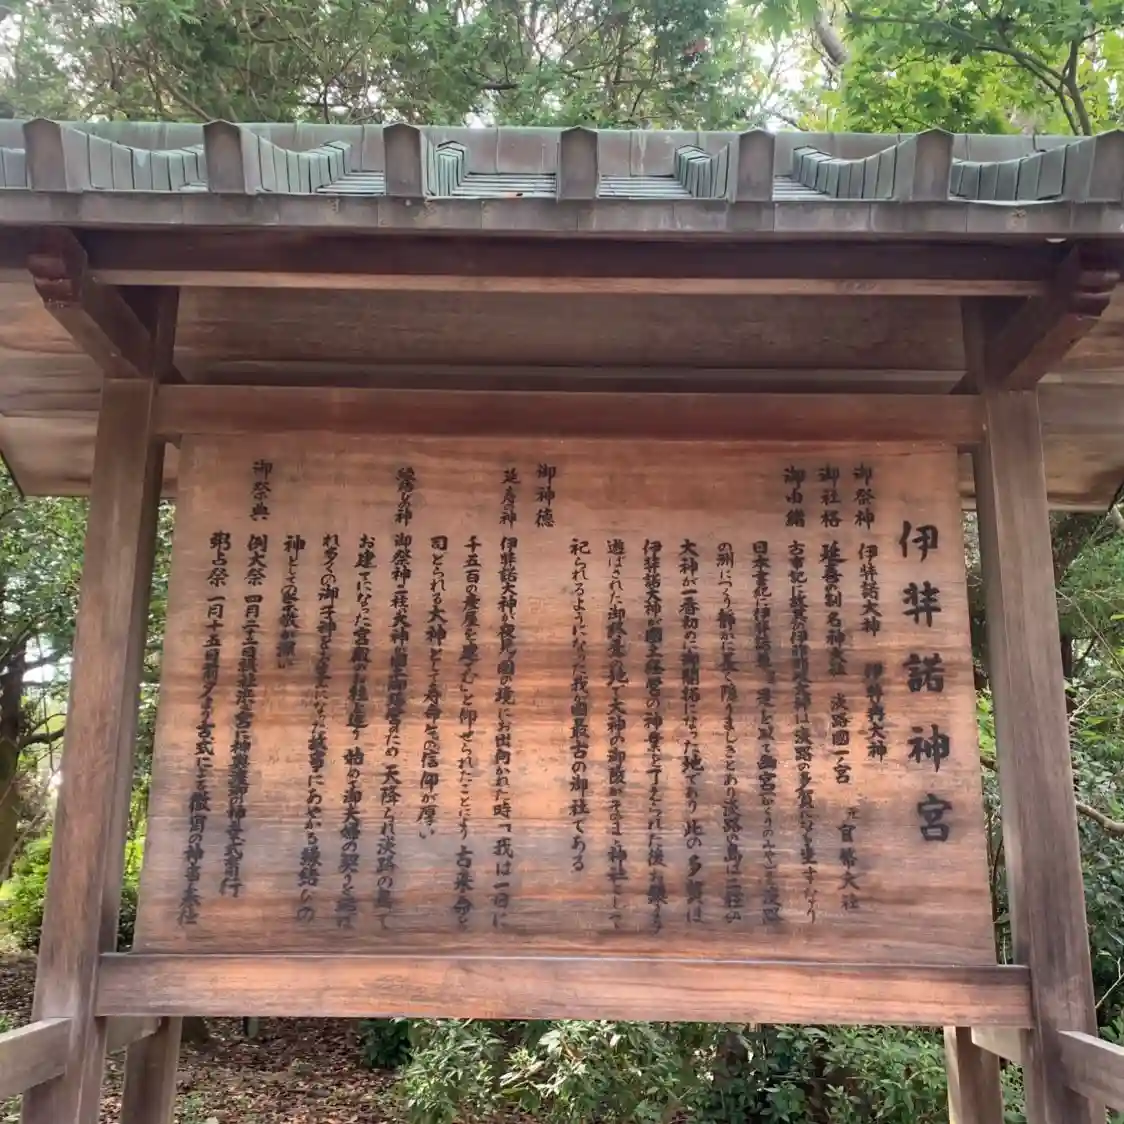 伊弉諾神宮
御祭神 伊弉諾大神 伊弉冉大神
御社格 延喜の制 名神大社 淡路國一ノ宮 元官幣大社
御由緒 古事記に故其の伊弉諾大神は淡路の多賀になも坐すなり
日本書紀に
の洲につくり静かに長く隠りましきとあり淡路の島は二柱の
大神が一番初めに御開拓になった地であり 此の多賀は
伊弉諾大神が國土経営の神業を了えられた後お鎮まり
遊ばされた御終焉の地で大神の御陵がそのまゝ神社として
祀られるようになった我が國最古の御社である
御神徳
延寿の神 伊弉諾大神が夜見の國の境にお出向かれた時「我は一日に
千五百の産屋を建てむ」と仰せられたことにより 古来命を
司どられる大神として寿命长久の信仰が厚い
縁結の神 御祭神二柱の大神は國土御経営のため 天降られ淡路の島で
お建てになった宮殿の御柱を廻り 始めて御夫婦の契りを結ば
れ多くの御子神をお生みになった故事にあやかる縁結びの
神としての崇敬が深い
御祭典 例大祭 四月二十二日
粥占祭 一月十五日前夕より古式による徹宵の神事奉仕